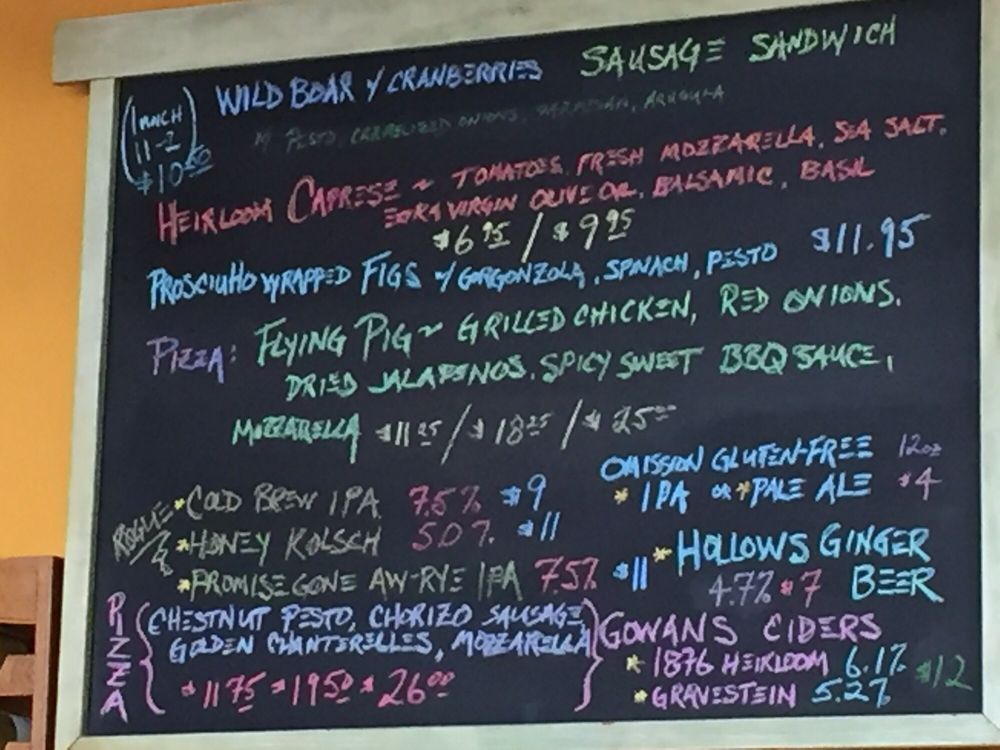 (LUNCH
11-2)
$10.50
WILD BOAR w/ CRANBERRIES SAUSAGE SANDWICH
W/ PESTO, CARMELIZED ONIONS, PARMESAN, ARUGULA
HEIRLOOM CAPRESE ~ TOMATOES, FRESH MOZZARELLA, SEA SALT,
EXTRA VIRGIN OLIVE OIL, BALSAMIC, BASIL
$6.95 / $9.95
PROSCIUTTO WRAPPED FIGS w/ GORGONZOLA, SPINACH, PESTO $11.95
PIZZA: FLYING PIG ~ GRILLED CHICKEN, RED ONIONS,
DRIED JALAPENOS, SPICY SWEET BBQ SAUCE,
MOZZARELLA $11.25 / $18.25 / $25.00
OMISSION GLUTEN-FREE 12oz
* IPA OR * PALE ALE $4
ROGUE
* COLD BREW IPA 7.5% $9
* HONEY KOLSCH 5.0% $11
* PROMISE GONE AW-RYE IPA 7.5% $11
* HOLLOWS GINGER
BEER
4.7% $7
PIZZA
{CHESTNUT PESTO, CHORIZO SAUSAGE,
GOLDEN CHANTERELLES, MOZZARELLA}
$11.75 $19.50 $26.00
GOWANS CIDERS
* 1876 HEIRLOOM 6.1%
* GRAVESTEIN 5.2%
$12